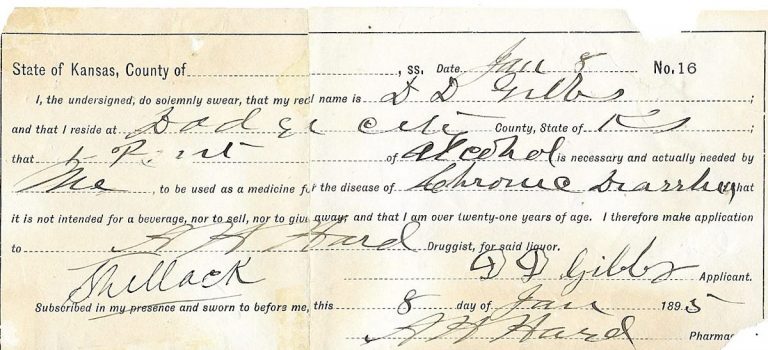 State of Kansas, County of , ss. Date Jan 8 No. 16
I, the undersigned, do solemnly swear, that my real name is D D Gibbs ;
and that I reside at Dodge City County, State of Ks ;
that 1 Pint of alcohol is necessary and actually needed by
Me , to be used as a medicine for the disease of Chronic Diarrhea ; that
it is not intended for a beverage, nor to sell, nor to give away; and that I am over twenty-one years of age. I therefore make application
to Hard Druggist, for said liquor.
Shellack D D Gibbs Applicant.
Subscribed in my presence and sworn to before me, this 8 day of Jan 1895
Hard Pharmac